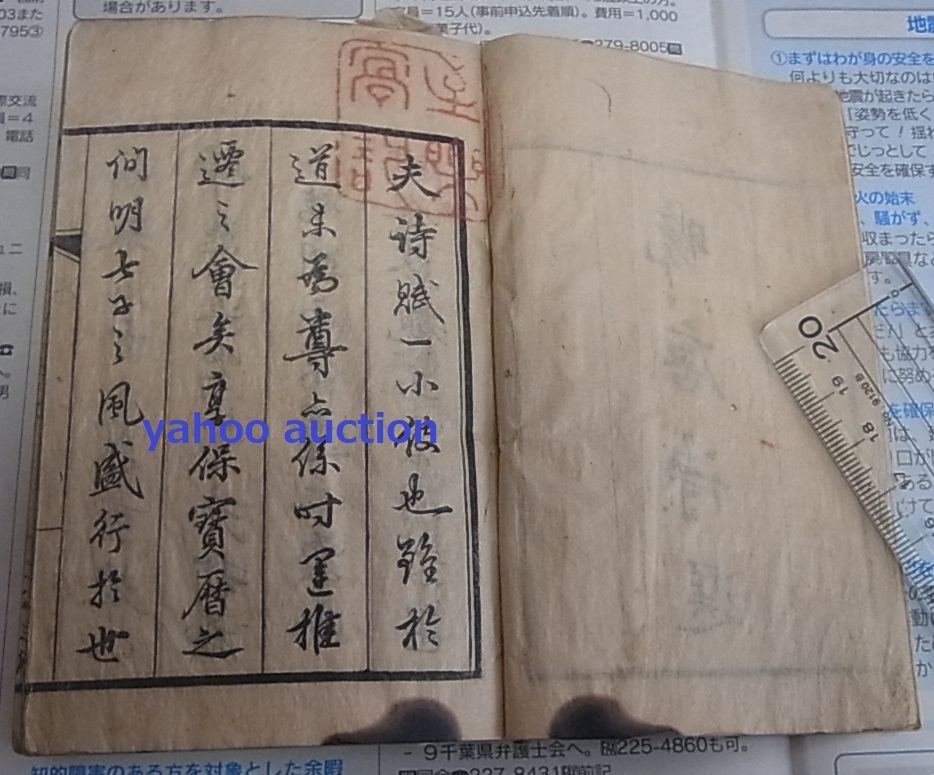 夫詩賦一小技也雖於
道未為尊亦係時運推
遷之會矣享保寶暦之
間明七子之風盛行於世
yahoo auction
場合があります。
員=15人(事前申込先着順)。費用=1,000
菓子代)。
279-8005
03また
795③
際交流
員=4
電話
同
ュニ
損、
に
男
地震
①まずはわが身の安全を
何よりも大切なのは
地震が起きたら
姿勢を低く
守って!揺れ
でじっとして
安全を確保す
火の始末
、騒がず、
収まったら
す。
も協力を
に努め
を確保
口が
ある
20
19
18
9千葉県弁護士会へ。 225-4860も可。
227-8431
知的障害のある方を対象とした余暇